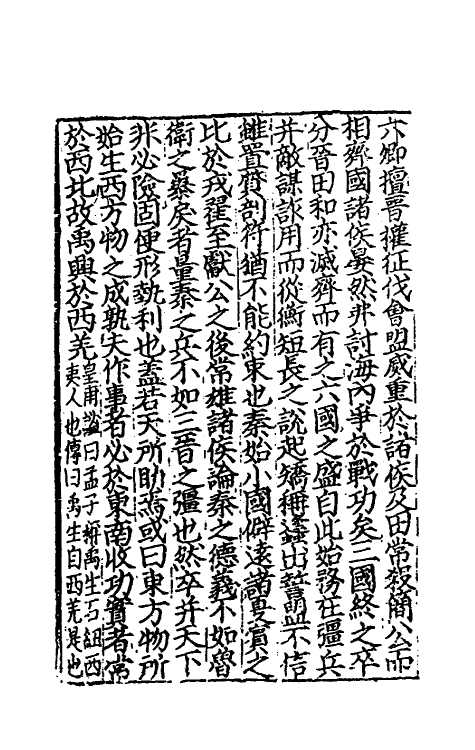 六卿擅晉權征伐會盟威重於諸侯及田常殺簡公而
相齊國諸侯晏然弗討海内爭於戰功矣三國終之卒
分晉田和亦滅齊而有之六國之盛自此始務在彊兵
并敵謀詐用而從衡短長之說起矯稱蠭出誓盟不信
雖置質剖符猶不能約束也秦始小國僻逺諸夏賔之
比於戎翟至獻公之後常雄諸侯論秦之德義不如魯
衛之暴戾者量秦之兵不如三晉之彊也然卒并天下
非必險固便形埶利也蓋若天所助焉或曰東方物所
始生西方物之成孰夫作事者必於東南收功實者常
於西北故禹興於西羌皇甫謐曰孟子稱禹生石紐西
夷人也傳曰禹生自西羌是也